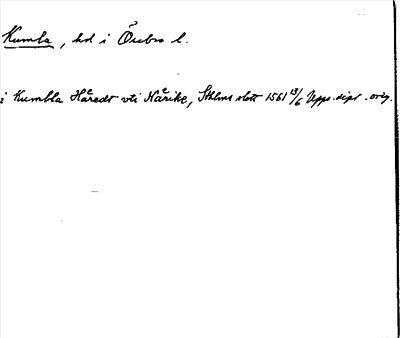 Kumbla, hd i Örebro l.
i Kumbla Häredt vti Närike, Sthlms slott 1561 13/6 Upps. dipl. orig.